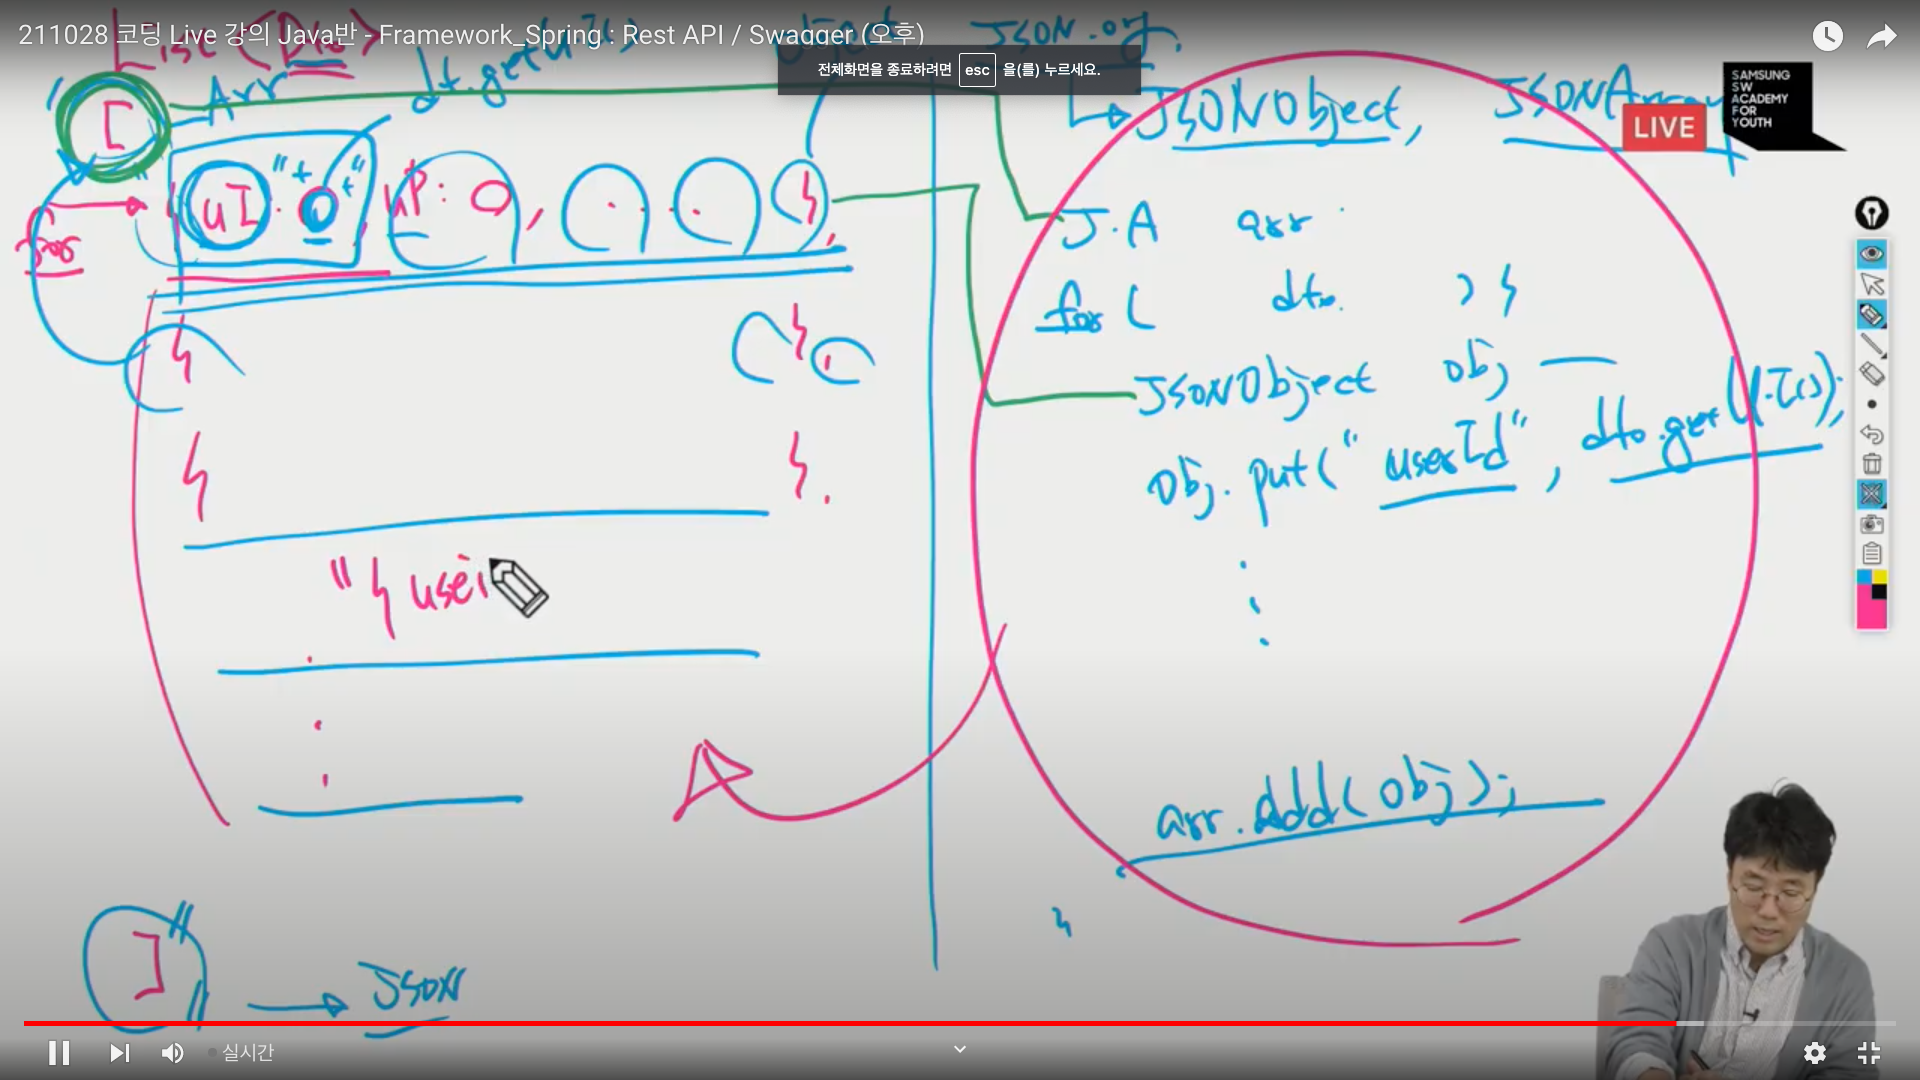 211028 코딩 Live 강의 Java반 - Framework_Spring : Rest API / Swagger (오후)
전체화면을 종료하려면 esc 을(를) 누르세요.
SAMSUNG
SW
ACADEMY
FOR
YOUTH
LIVE
List <Dto>
Object
JSON.org.
[ Arr
JSONObject, JSONArray
uI : "+ +" uP : ,
for
J.A arr
for ( dto ) {
JSONObject obj
obj. put(" userId", dto.getU.I());
"{ user
arr.add(obj);
}
]"
JSON
실시간